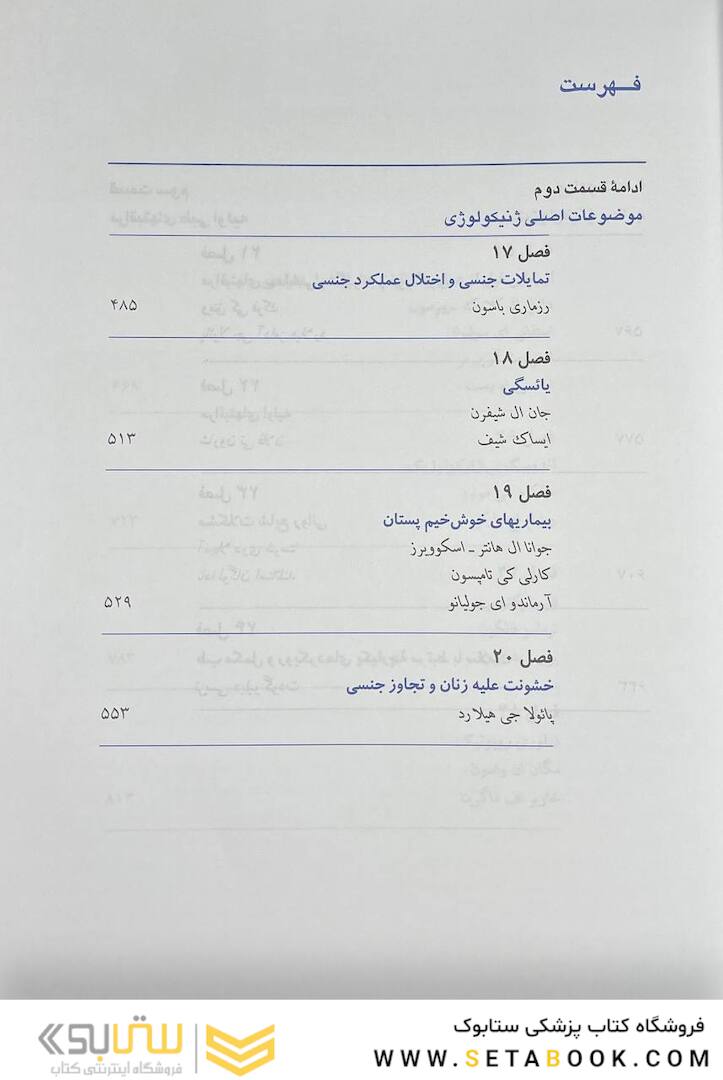 فهرست
ادامهٔ قسمت دوم
موضوعات اصلی ژنیکولوژی
فصل ۱۷
تمایلات جنسی و اختلال عملکرد جنسی
رزماری باسون ۴۸۵
فصل ۱۸
یائسگی
جان ال شیفرن
ایساک شیف ۵۱۳
فصل ۱۹
بیماریهای خوش‌خیم پستان
جوانا ال هانتر ـ اسکوویرز
کارلی کی تامپسون
آرماندو ای جولیانو ۵۲۹
فصل ۲۰
خشونت علیه زنان و تجاوز جنسی
پائولا جی هیلارد ۵۵۳
فروشگاه کتاب پزشکی ستابوک
WWW.SETABOOK.COM
ستابوک
فروشگاه اینترنتی کتاب